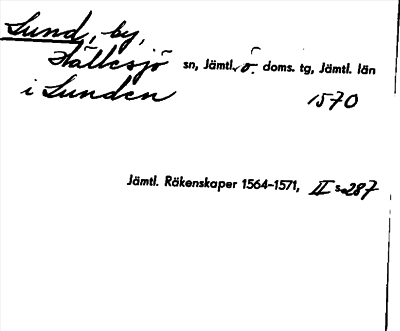 Lund, by,
Hällesjö sn, Jämtl. ö. doms. tg, Jämtl. län
i Lunden 1570
Jämtl. Räkenskaper 1564-1571, II s. 287